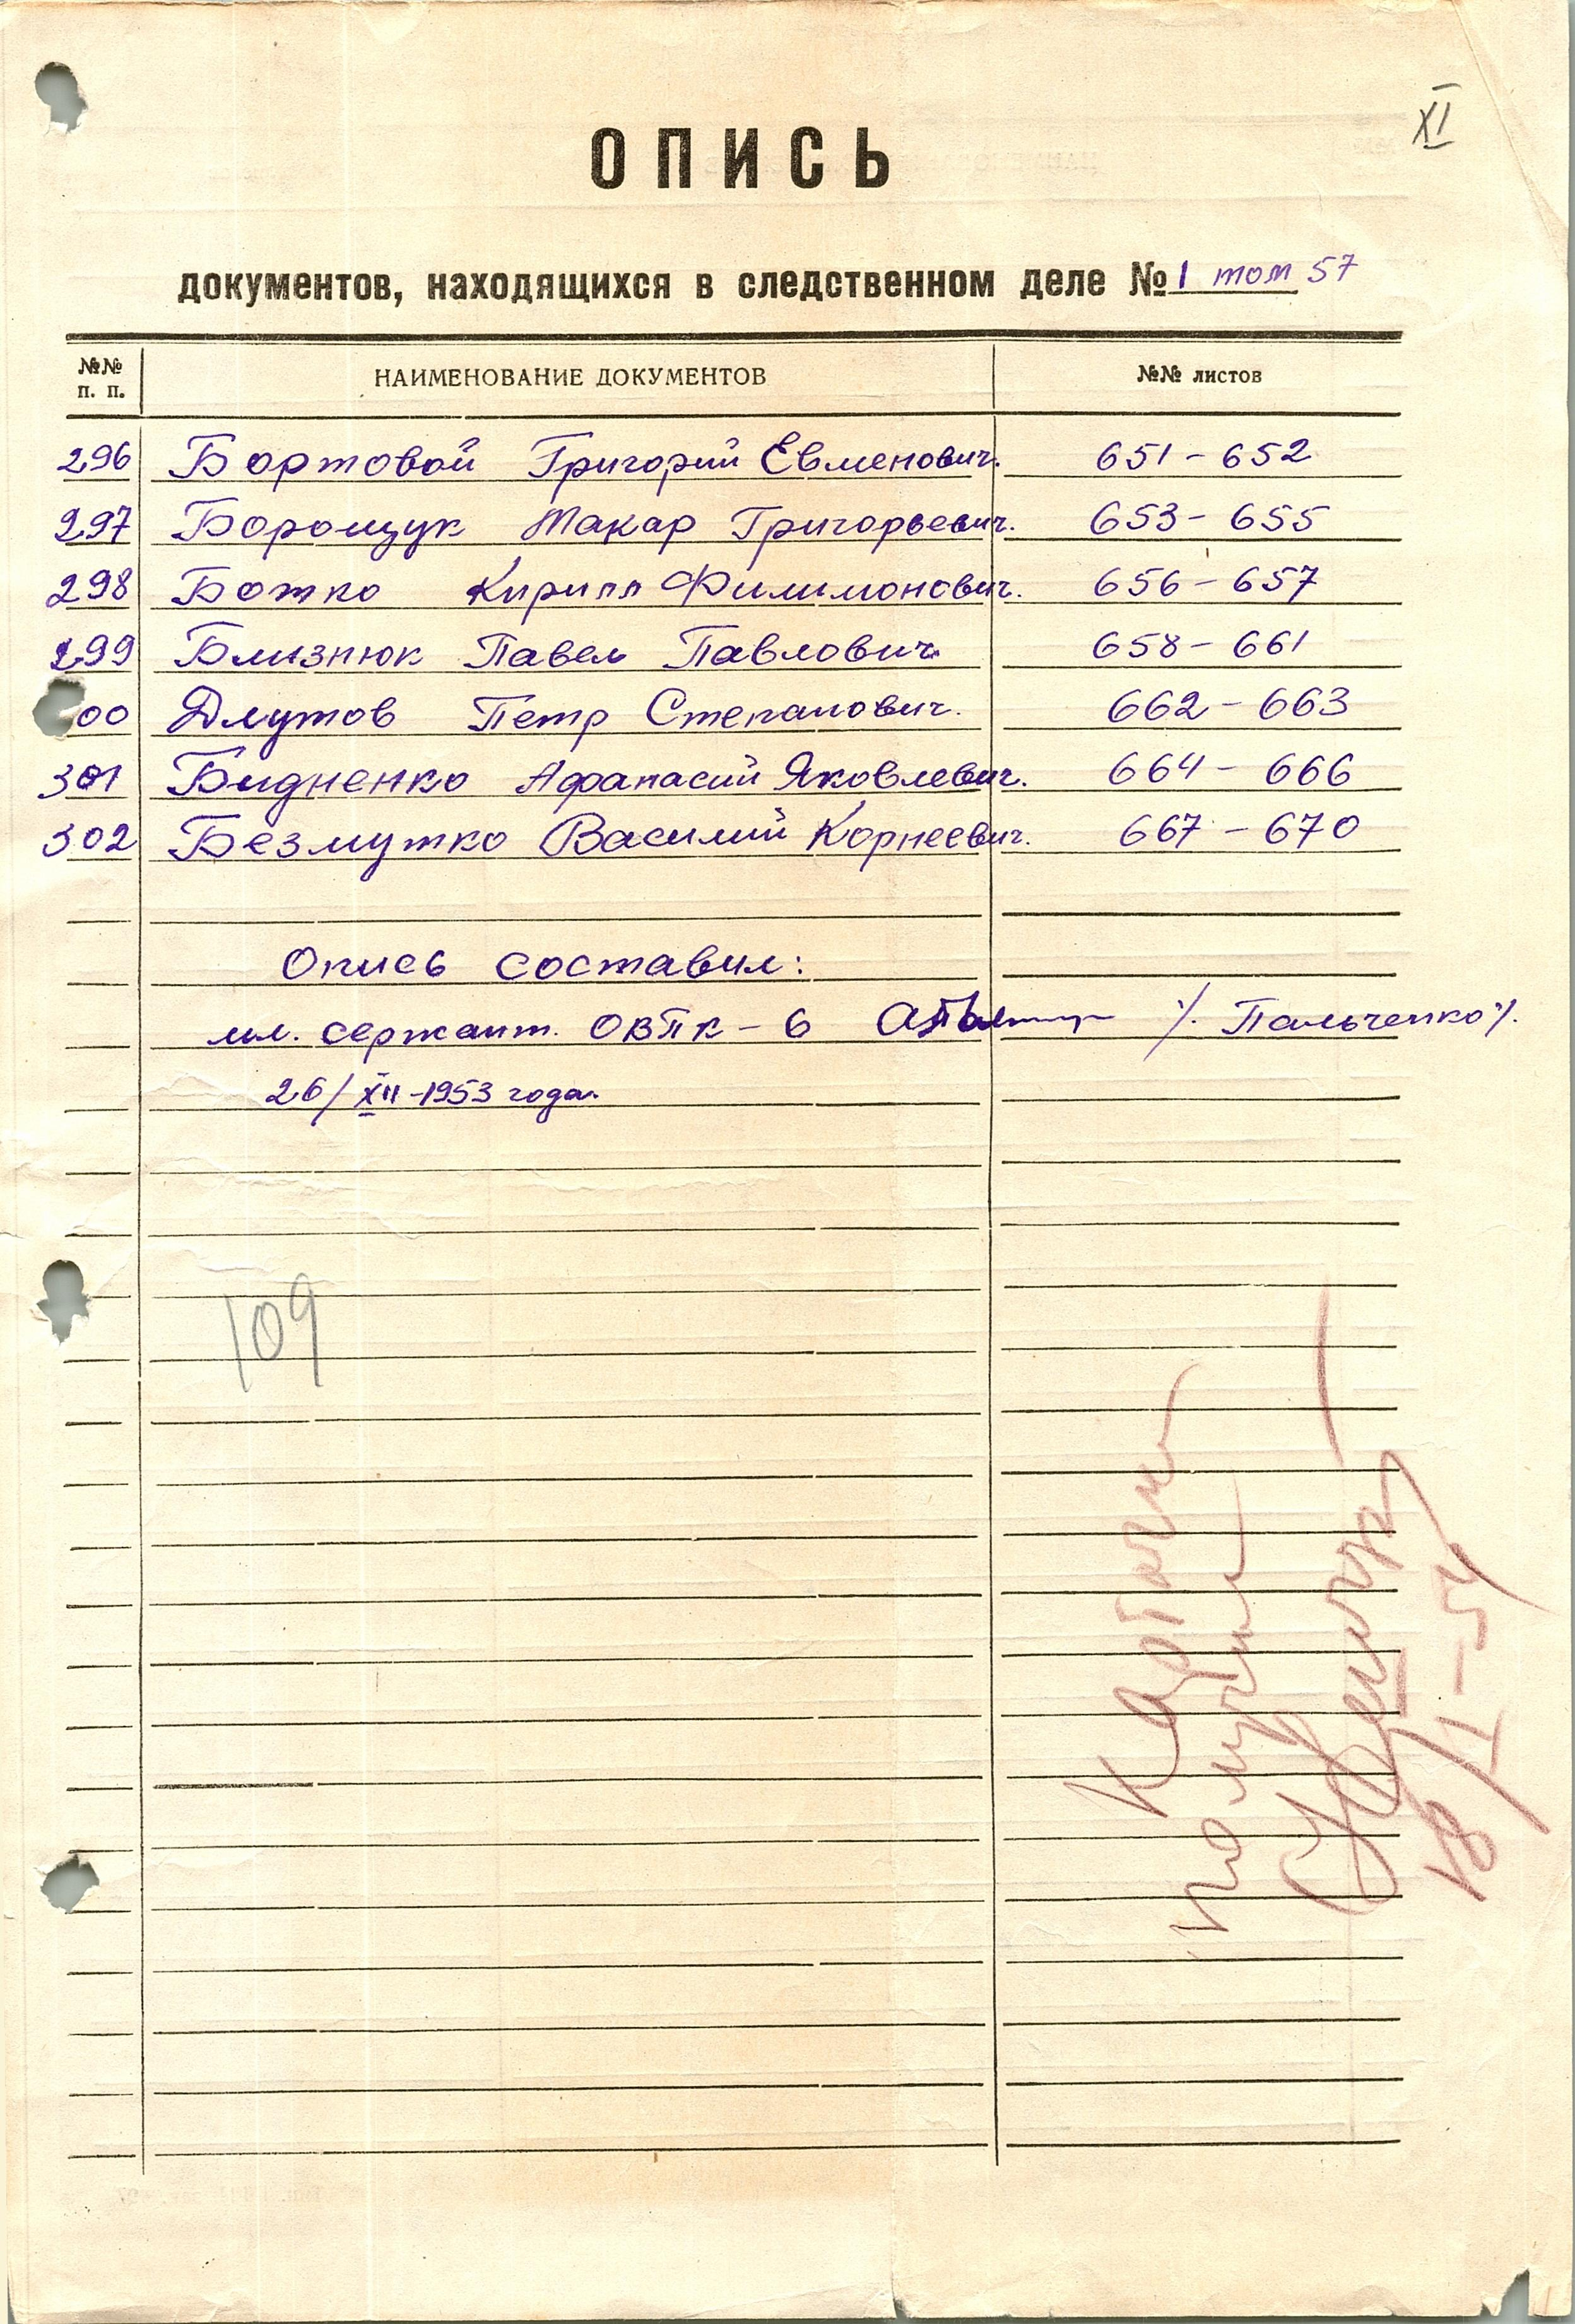 XI
ОПИСЬ
документов, находящихся в следственном деле № 1 том 57
№№ п. п. НАИМЕНОВАНИЕ ДОКУМЕНТОВ №№ листов
296 Бортовой Григорий Евменович. 651 - 652
297 Боромщук Макар Григорьевич. 653 - 655
298 Божко Кирилл Филимонович. 656 - 657
299 Близнюк Павел Павлович 658 - 661
00 Длутов Петр Степанович. 662 - 663
301 Бидненко Афанасий Яковлевич. 664 - 666
302 Безмутко Василий Корнеевич. 667 - 670
Опись составил:
мл. сержант. ОВПК - 6 /. Пальченко /.
26/XII-1953 года.
109
получил
18/I-54